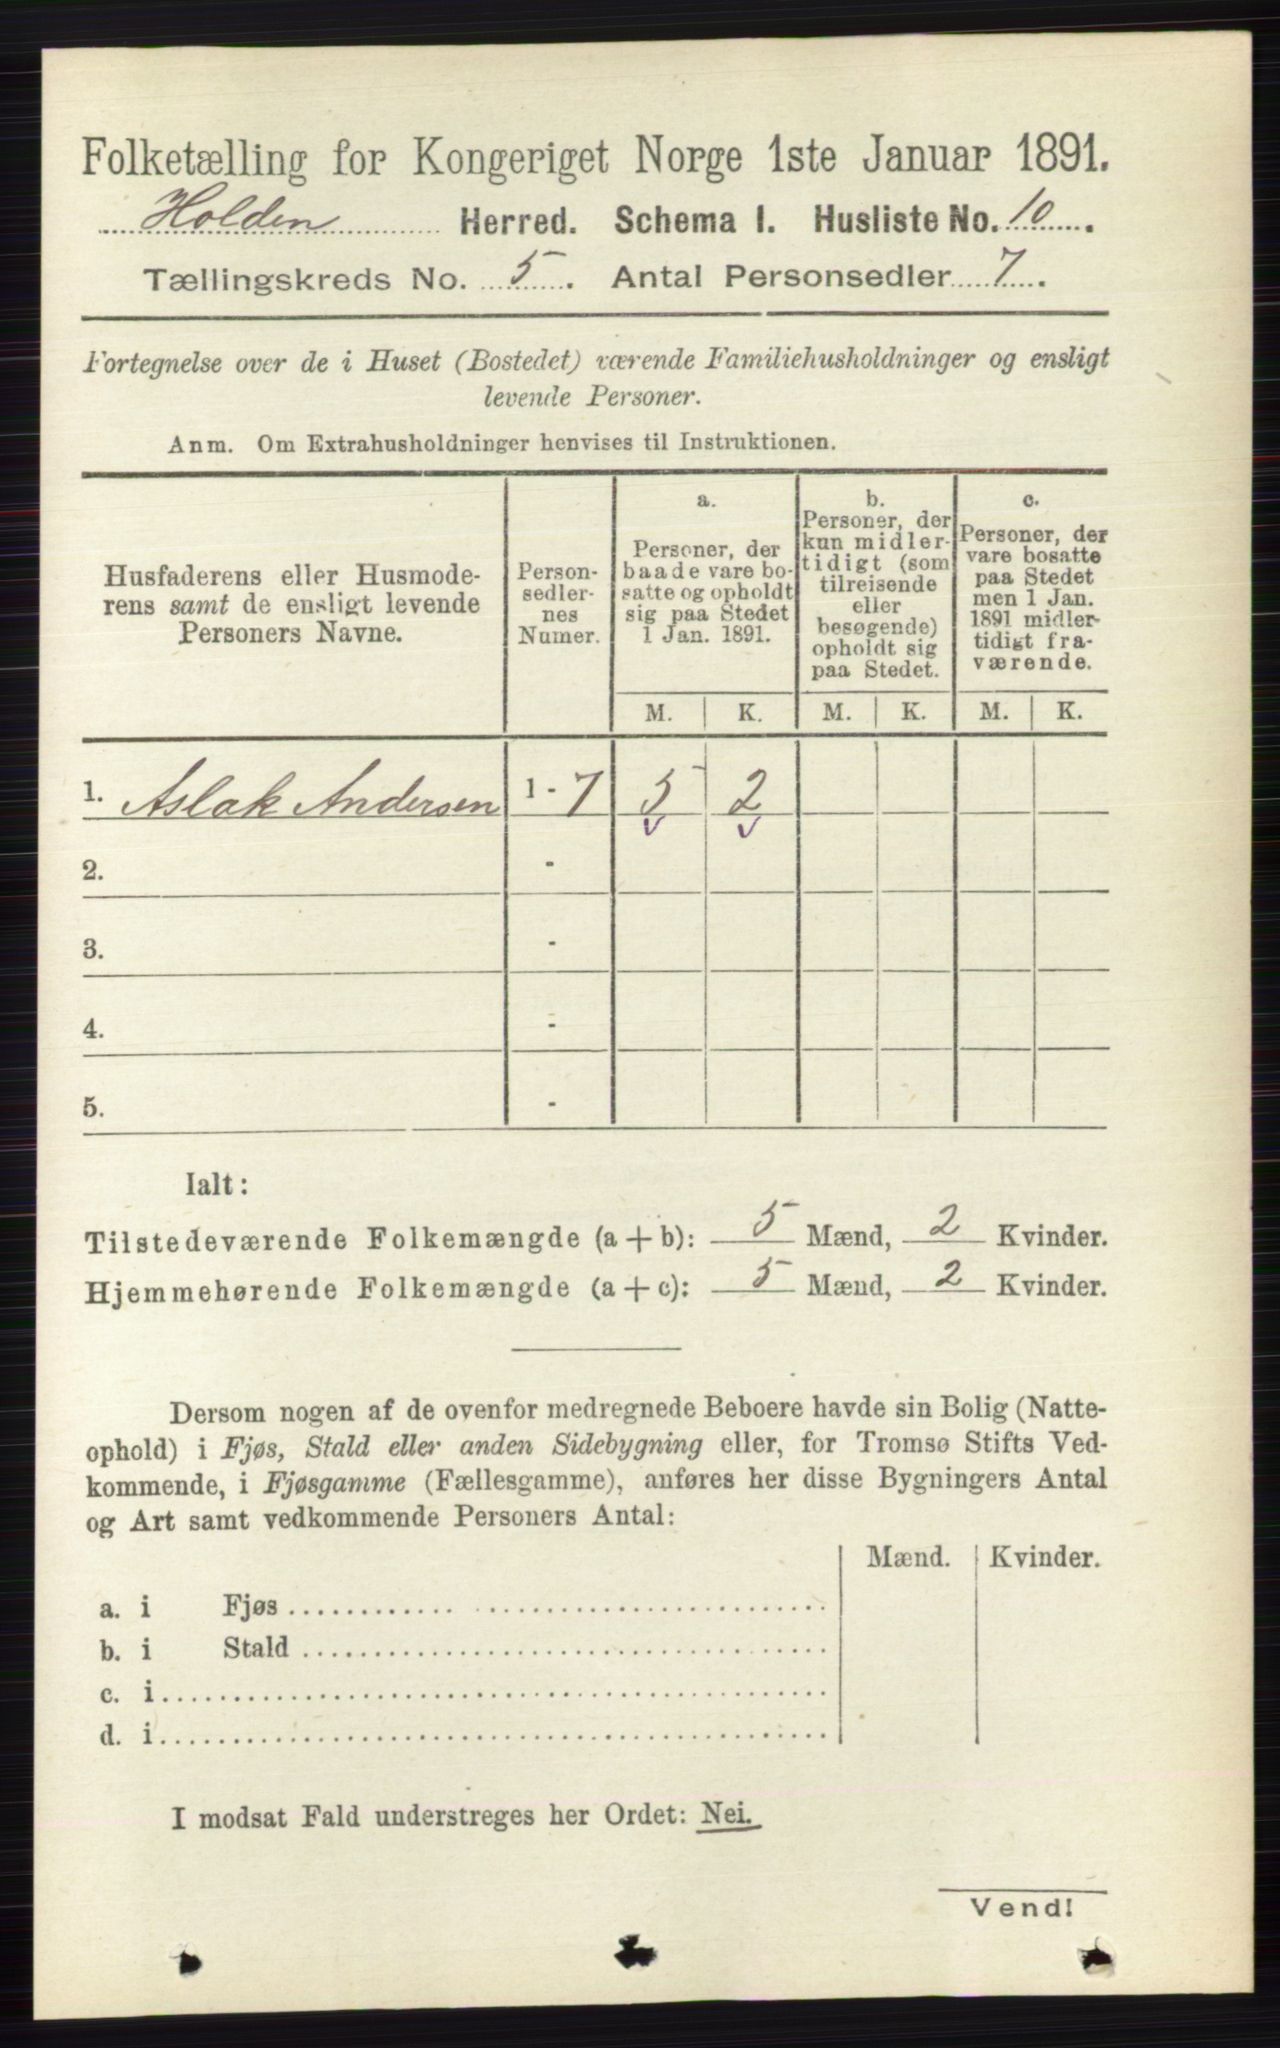 Folketælling for Kongeriget Norge 1ste Januar 1891.
Holden Herred. Schema I. Husliste No. 10.
Tællingskreds No. 5. Antal Personsedler 7.
Fortegnelse over de i Huset (Bostedet) værende Familiehusholdninger og ensligt
levende Personer.
Anm. Om Extrahusholdninger henvises til Instruktionen.
Husfaderens eller Husmode-
rens samt de ensligt levende
Personers Navne.
Person-
sedler-
nes
Numer.
a.
Personer, der
baade vare bo-
satte og opholdt
sig paa Stedet
1 Jan. 1891.
b.
Personer, der
kun midler-
tidigt (som
tilreisende
eller
besøgende)
opholdt sig
paa Stedet.
c.
Personer, der
vare bosatte
paa Stedet
men 1 Jan.
1891 midler-
tidigt fra-
værende.
M. K. M. K. M. K.
1. Aslak Andersen 1 - 7 5 2
2. -
3. -
4. -
5. -
Ialt:
Tilstedeværende Folkemængde (a + b): 5 Mænd, 2 Kvinder.
Hjemmehørende Folkemængde (a + c): 5 Mænd, 2 Kvinder.
Dersom nogen af de ovenfor medregnede Beboere havde sin Bolig (Natte-
ophold) i Fjøs, Stald eller anden Sidebygning eller, for Tromsø Stifts Ved-
kommende, i Fjøsgamme (Fællesgamme), anføres her disse Bygningers Antal
og Art samt vedkommende Personers Antal:
Mænd. Kvinder.
a. i Fjøs
b. i Stald
c. i
d. i
I modsat Fald understreges her Ordet: Nei.
Vend!